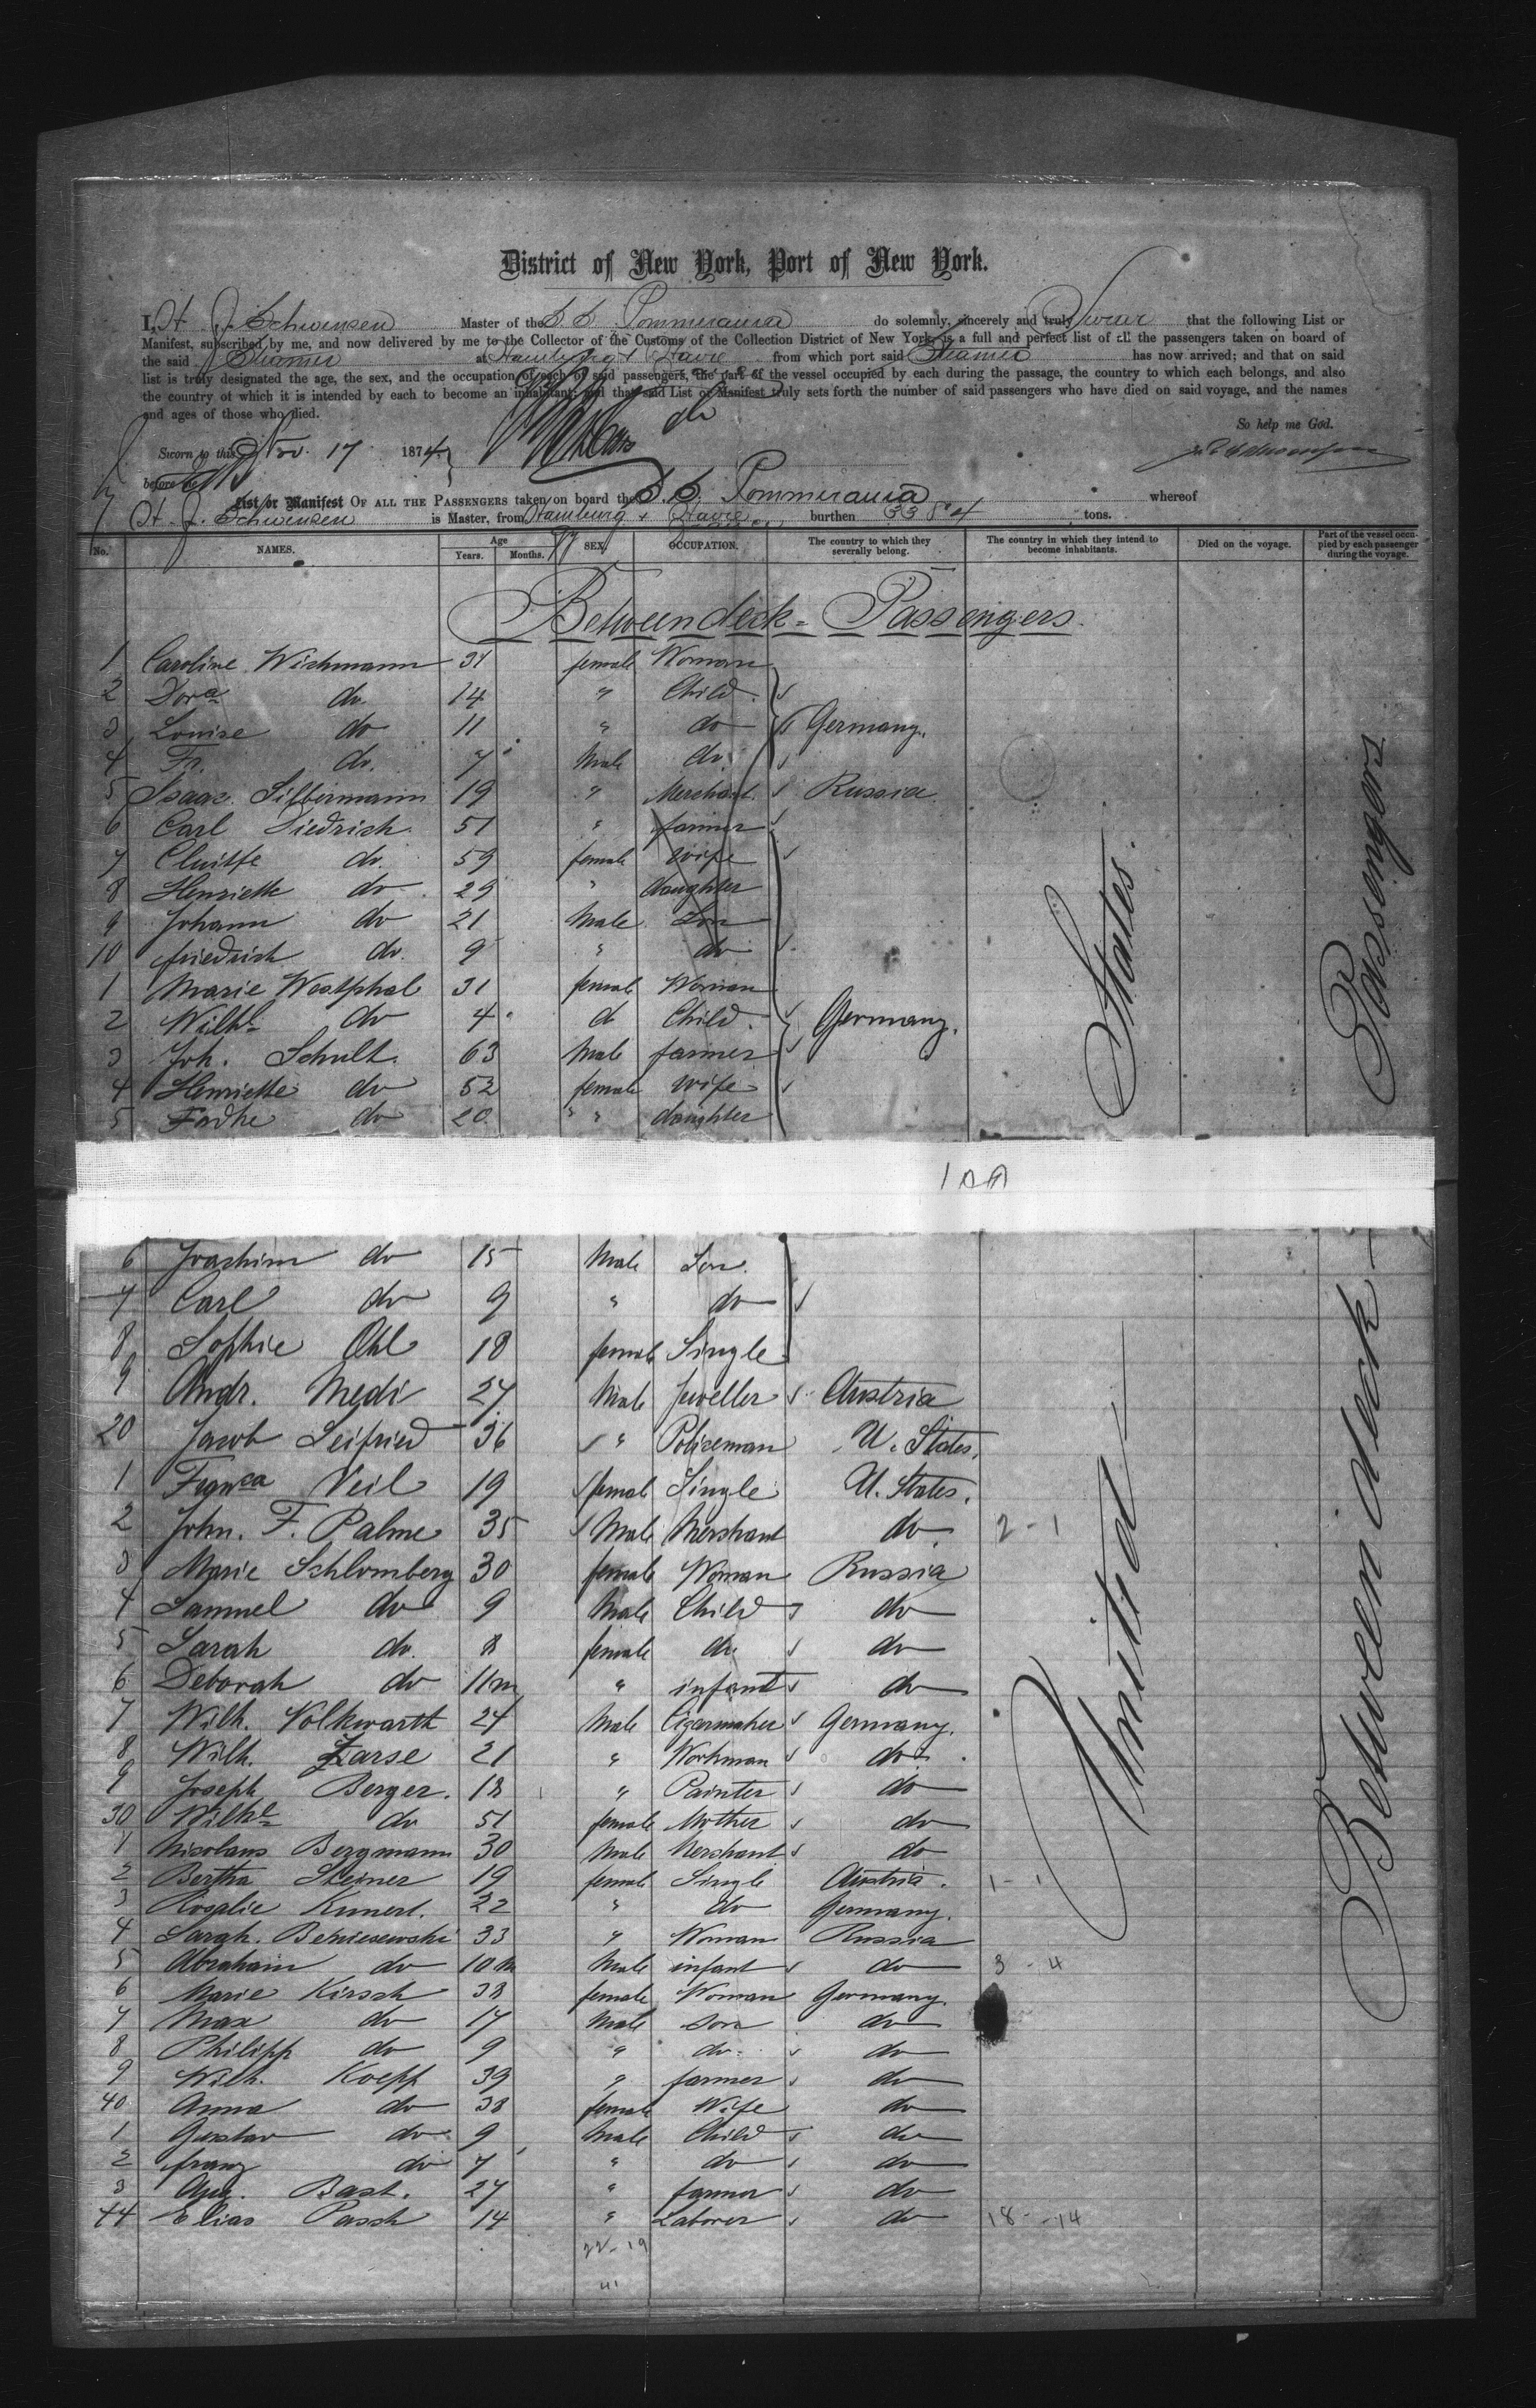 District of New York, Port of New York.
I, H. J. Schwensen Master of the S. S. Pommerania do solemnly, sincerely and truly Swear that the following List or
Manifest, subscribed by me, and now delivered by me to the Collector of the Customs of the Collection District of New York, is a full and perfect list of all the passengers taken on board of
the said Steamer at Hamburg & Havre from which port said Steamer has now arrived; and that on said
list is truly designated the age, the sex, and the occupation of each of said passengers, the part of the vessel occupied by each during the passage, the country to which each belongs, and also
the country of which it is intended by each to become an inhabitant; and that said List or Manifest truly sets forth the number of said passengers who have died on said voyage, and the names
and ages of those who died.
So help me God.
Sworn to this Nov. 17 1874
before me
List or Manifest OF ALL THE PASSENGERS taken on board the S. S. Pommerania whereof
H. J. Schwensen is Master, from Hamburg & Havre burthen 3384 tons.
No. NAMES. Age Years. Months. SEX. OCCUPATION. The country to which they severally belong. The country in which they intend to become inhabitants. Died on the voyage. Part of the vessel occupied by each passenger during the voyage.
Between deck = Passengers.
1 Caroline Wichmann 31 female Woman
2 Dora do. 14 " Child
3 Louise do 11 " do Germany.
4 Fr. do. 7 Male do.
5 Isaac Silbermann 19 " Merchant Russia
6 Carl Diedrich 51 " farmer
7 do. 59 female Wife
8 Henriette do 29 " daughter
9 Johann do 21 Male Son
10 friedrich do. 9 " do
1 Marie Westphal 31 female Woman
2 Wilhe do 4 d Child Germany.
3 Joh. Schult 63 Male farmer
4 Henriette do 52 female Wife
5 do 20 " " daughter
6 Joachim do 15 Male Son.
7 Carl do 9 " do
8 Sophie Ohl 18 female Single
9 Andr. Medi 27 Male Jeweller Austria
20 Jacob Seifried 36 " Policeman U. States.
1 Veil 19 female Single U. States.
2 John. F. Palme 35 Male Merchant do 2-1
3 Marie Schlomberg 30 female Woman Russia
4 Samuel do 9 Male Child do
5 Sarah do. 8 female do. do
6 Deborah do 11m " infant do
7 Wilh. Volkwarth 24 Male Cigarmaker Germany.
8 Wilh. Zarse 21 " Workman do
9 Joseph Berger. 18 " Painter do
30 Wilhe do 51 female Mother do
1 Nicolaus Bergmann 30 Male Merchant do
2 Bertha Steiner 19 female Single Austria. 1-1
3 Rosalie Kunert. 22 " do Germany.
4 Sarah. 33 " Woman Russia
5 Abraham do 10m Male infant do 3-4
6 Marie Kirsch 38 female Woman Germany.
7 Max do 17 Male Son do
8 Philipp do 9 " do. do
9 Wilh. Koepp 39 " farmer do
40 Anna do 38 female Wife do
1 Gustav do. 9 Male Child do
2 franz do 7 " do do
3 Aug. Bast. 27 " farmer do
44 Elias Pasch 14 " Laborer do 18-14
22-19
41
United States.
Between deck Passengers